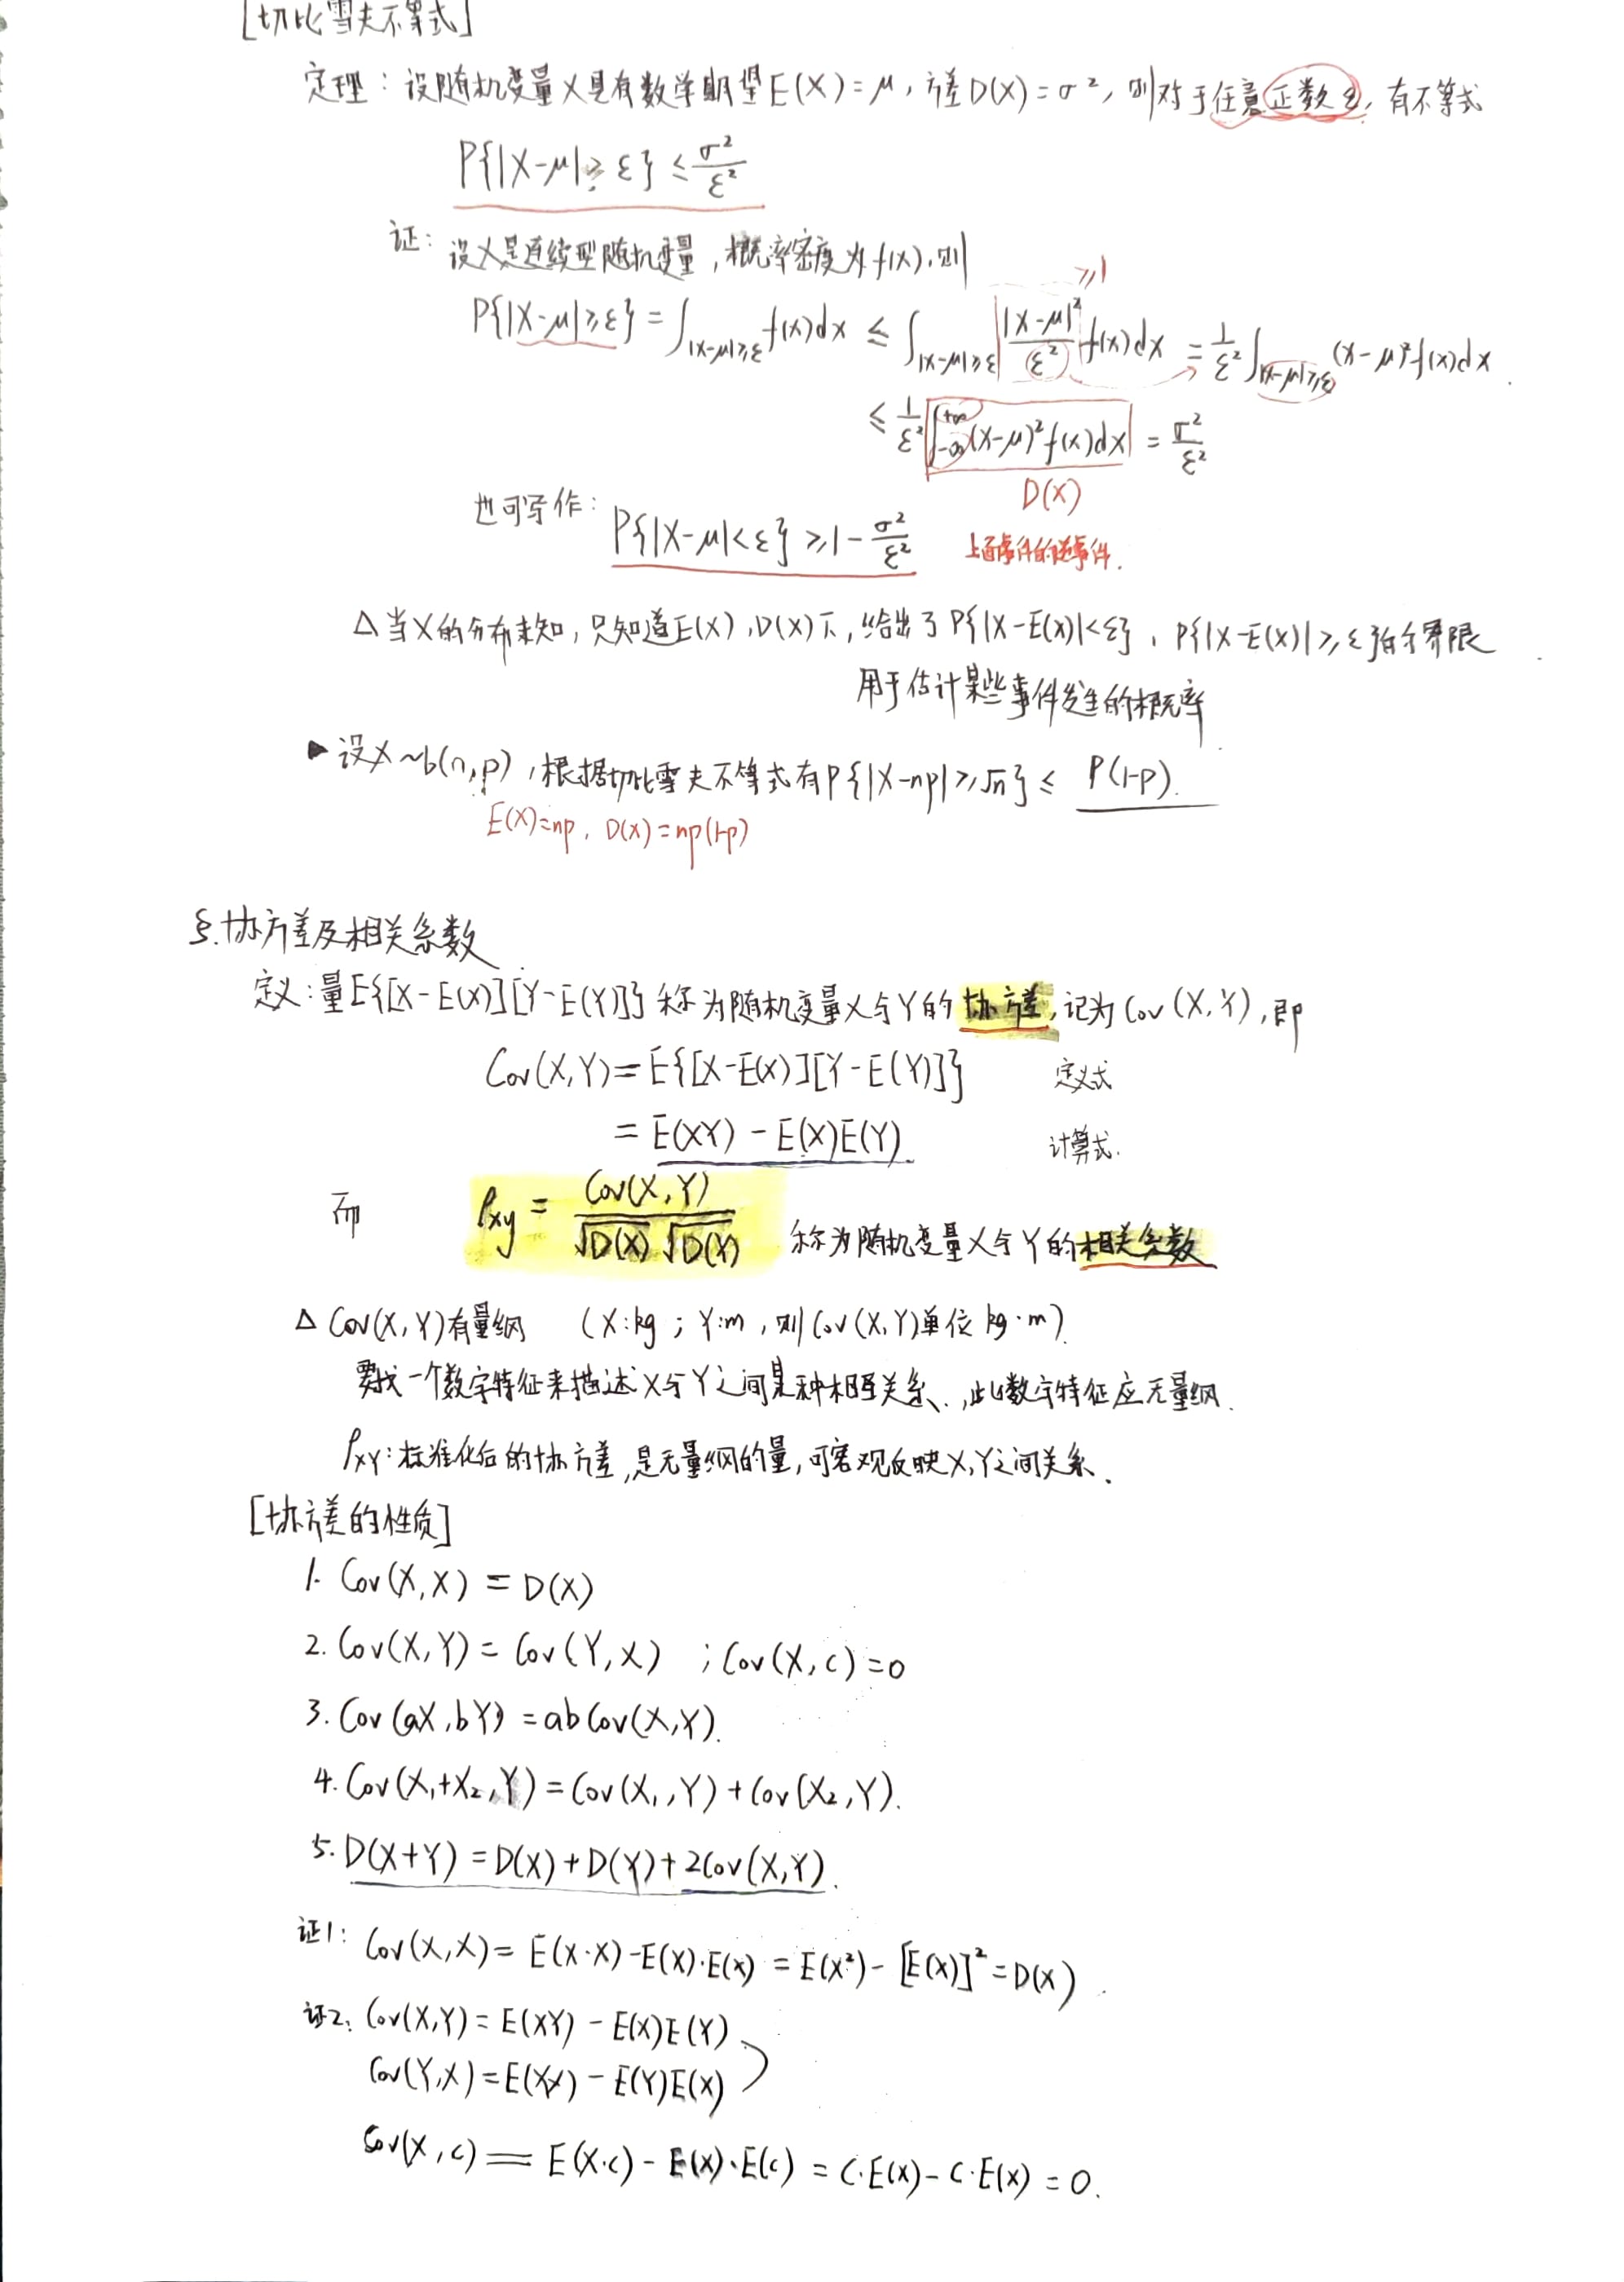 [切比雪夫不等式]
定理：设随机变量X具有数学期望E(X)=μ，方差D(X)=σ²，则对于任意正数ε，有不等式
P{|X-μ|≥ε}≤σ²/ε²
证：设X是连续型随机变量，概率密度为f(x)，则
≥1
P{|X-μ|≥ε}=∫_{|x-μ|≥ε}f(x)dx ≤ ∫_{|x-μ|≥ε} |x-μ|²/ε² f(x)dx = 1/ε² ∫_{|x-μ|≥ε}(x-μ)²f(x)dx.
≤ 1/ε² ∫_{-∞}^{+∞}(x-μ)²f(x)dx = σ²/ε²
D(X)
也可写作：P{|X-μ|<ε}≥1-σ²/ε² 上面事件的逆事件.
△当X的分布未知，只知道E(X),D(X)下，给出了P{|X-E(X)|<ε}，P{|X-E(X)|≥ε}的界限
用于估计某些事件发生的概率
▶设X~b(n,p)，根据切比雪夫不等式有P{|X-np|≥√n}≤ P(1-p).
E(X)=np，D(X)=np(1-p)
§.协方差及相关系数
定义：量E{[X-E(X)][Y-E(Y)]}称为随机变量X与Y的协方差，记为Cov(X,Y)，即
Cov(X,Y)=E{[X-E(X)][Y-E(Y)]} 定义式
=E(XY)-E(X)E(Y) 计算式.
而 ρxy = Cov(X,Y)/(√D(X) √D(Y)) 称为随机变量X与Y的相关系数
△ Cov(X,Y)有量纲 (X:kg；Y:m，则Cov(X,Y)单位kg·m)
要找一个数字特征来描述X与Y之间某种相互关系，此数字特征应无量纲.
ρXY：标准化后的协方差，是无量纲的量，可客观反映X,Y之间关系.
[协方差的性质]
1. Cov(X,X)=D(X)
2. Cov(X,Y)=Cov(Y,X) ；Cov(X,c)=0
3. Cov(aX,bY)=abCov(X,Y).
4. Cov(X₁+X₂,Y)=Cov(X₁,Y)+Cov(X₂,Y).
5. D(X+Y)=D(X)+D(Y)+2Cov(X,Y).
证1：Cov(X,X)=E(X·X)-E(X)·E(X)=E(X²)-[E(X)]²=D(X).
证2：Cov(X,Y)=E(XY)-E(X)E(Y)
Cov(Y,X)=E(YX)-E(Y)E(X)
Cov(X,c)=E(X·c)-E(X)·E(c)=C·E(X)-C·E(X)=0.